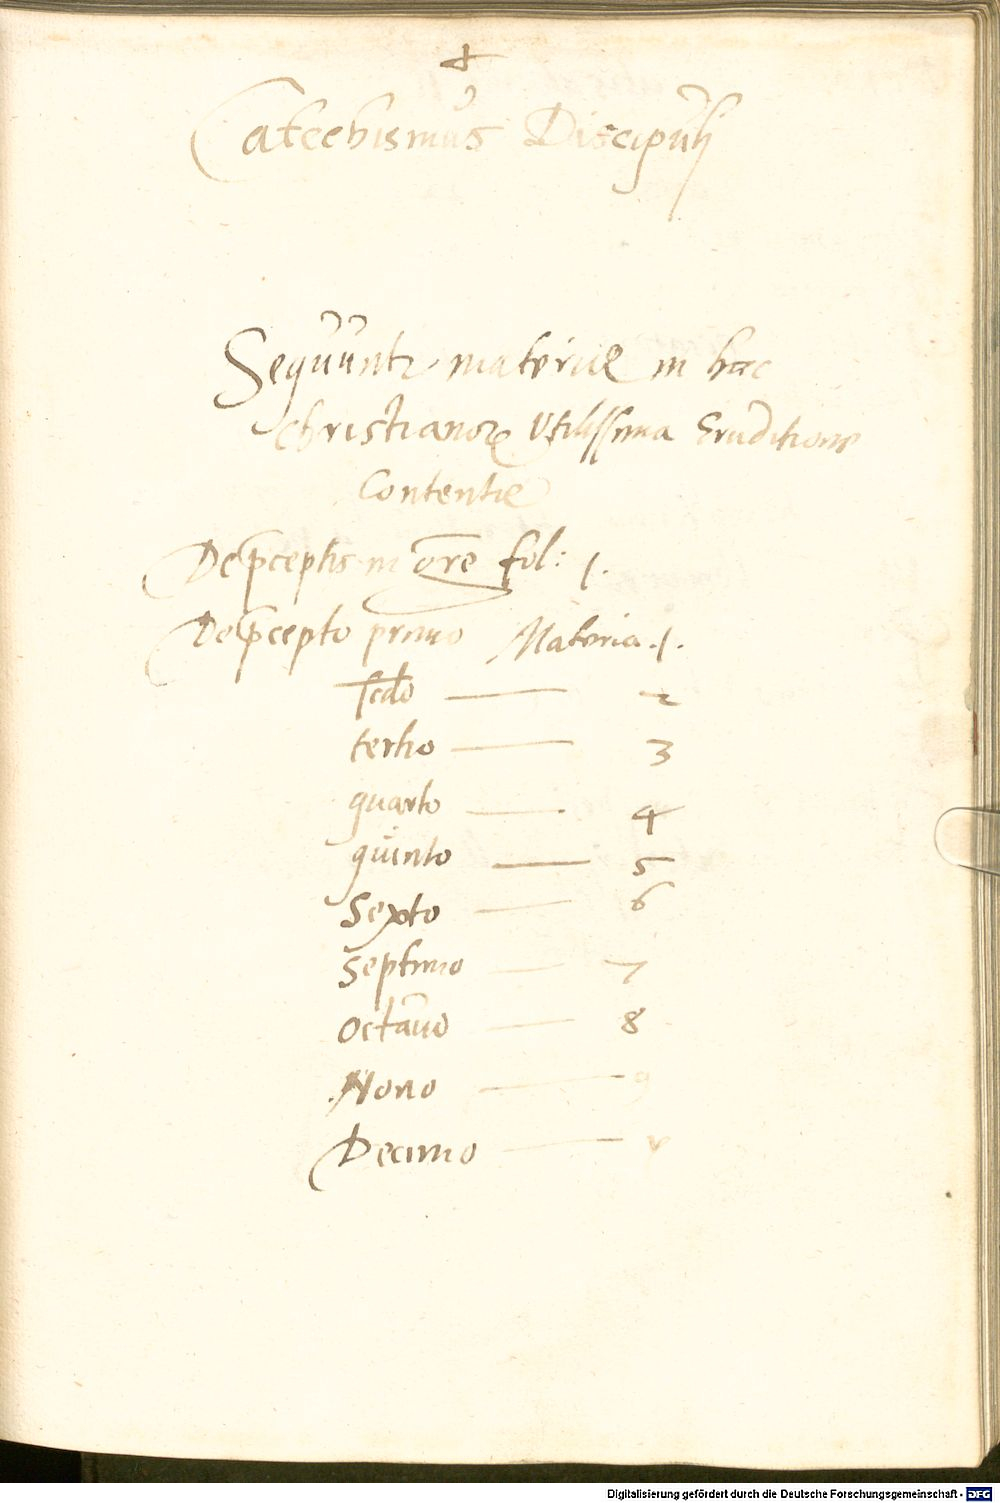 +
Catechismus Discipuli
Sequuntr materiae in hac
christianorꝝ Utilissima Eruditione
Contentae
De p̄ceptis in gn̄re fol: 1.
De p̄cepto primo Materia .1.
scdo — 2
tertio — 3
quarto — 4
quinto — 5
Sexto — 6
septimo — 7
octavo — 8
Nono — 9
Decimo —
Digitalisierung gefördert durch die Deutsche Forschungsgemeinschaft - DFG